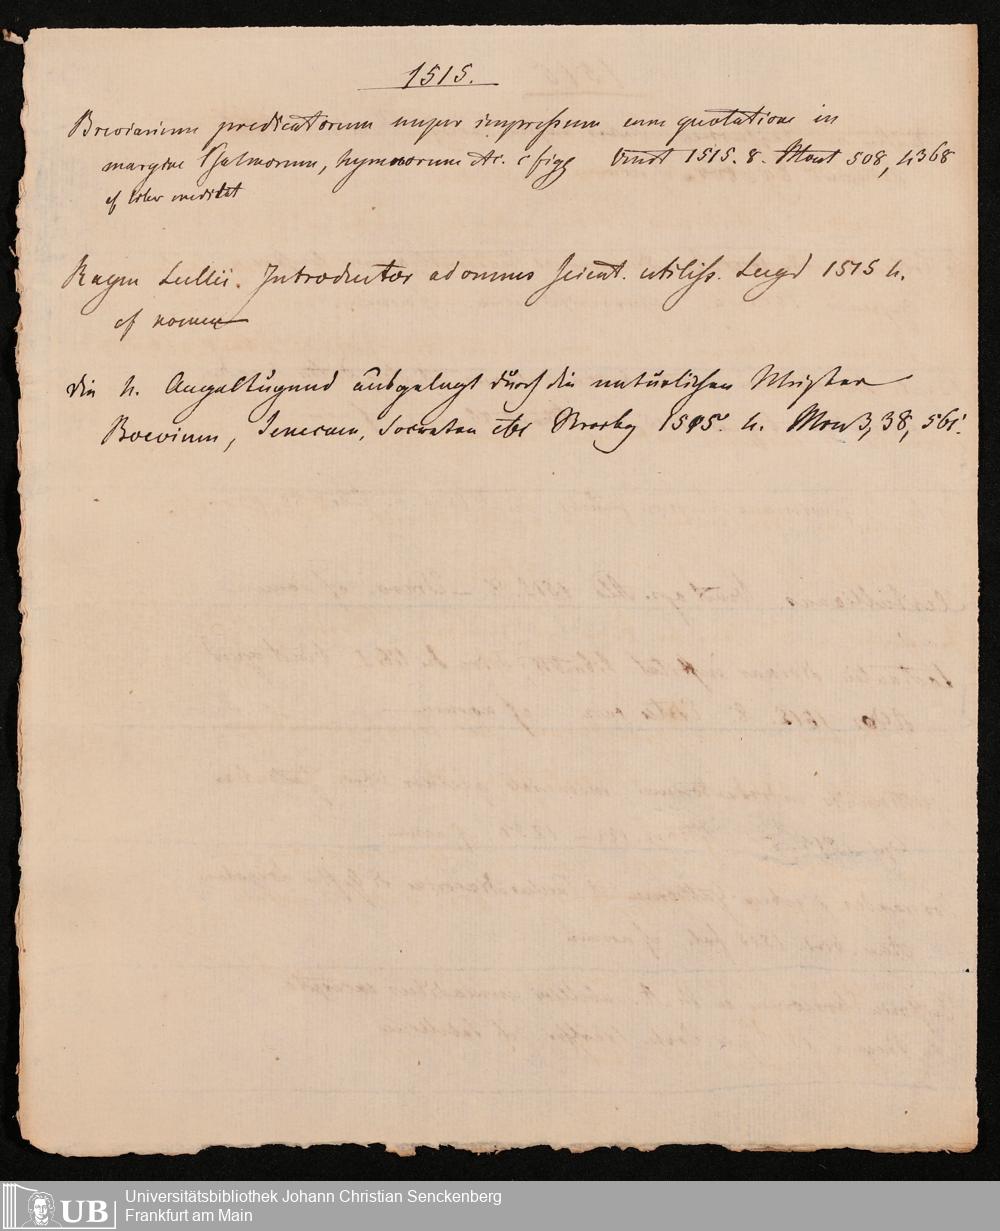 1515.
Breviarium predicatorum nuper impressum cum quotatione in
margine Psalmorum, hymnorum etc. c figg Venet 1515. 8. 508, 4368
cf liber
Raym Lullii. Introductor ad omnes scient. utiliss. Lugd 1515 4.
cf nomen
die 4. Angeltugend außgelegt durch die natürlichen Meister
Boecium, Senecam, Socraten etc Strasbg 1515. 4. 3, 38, 561.
UB Universitätsbibliothek Johann Christian Senckenberg
Frankfurt am Main